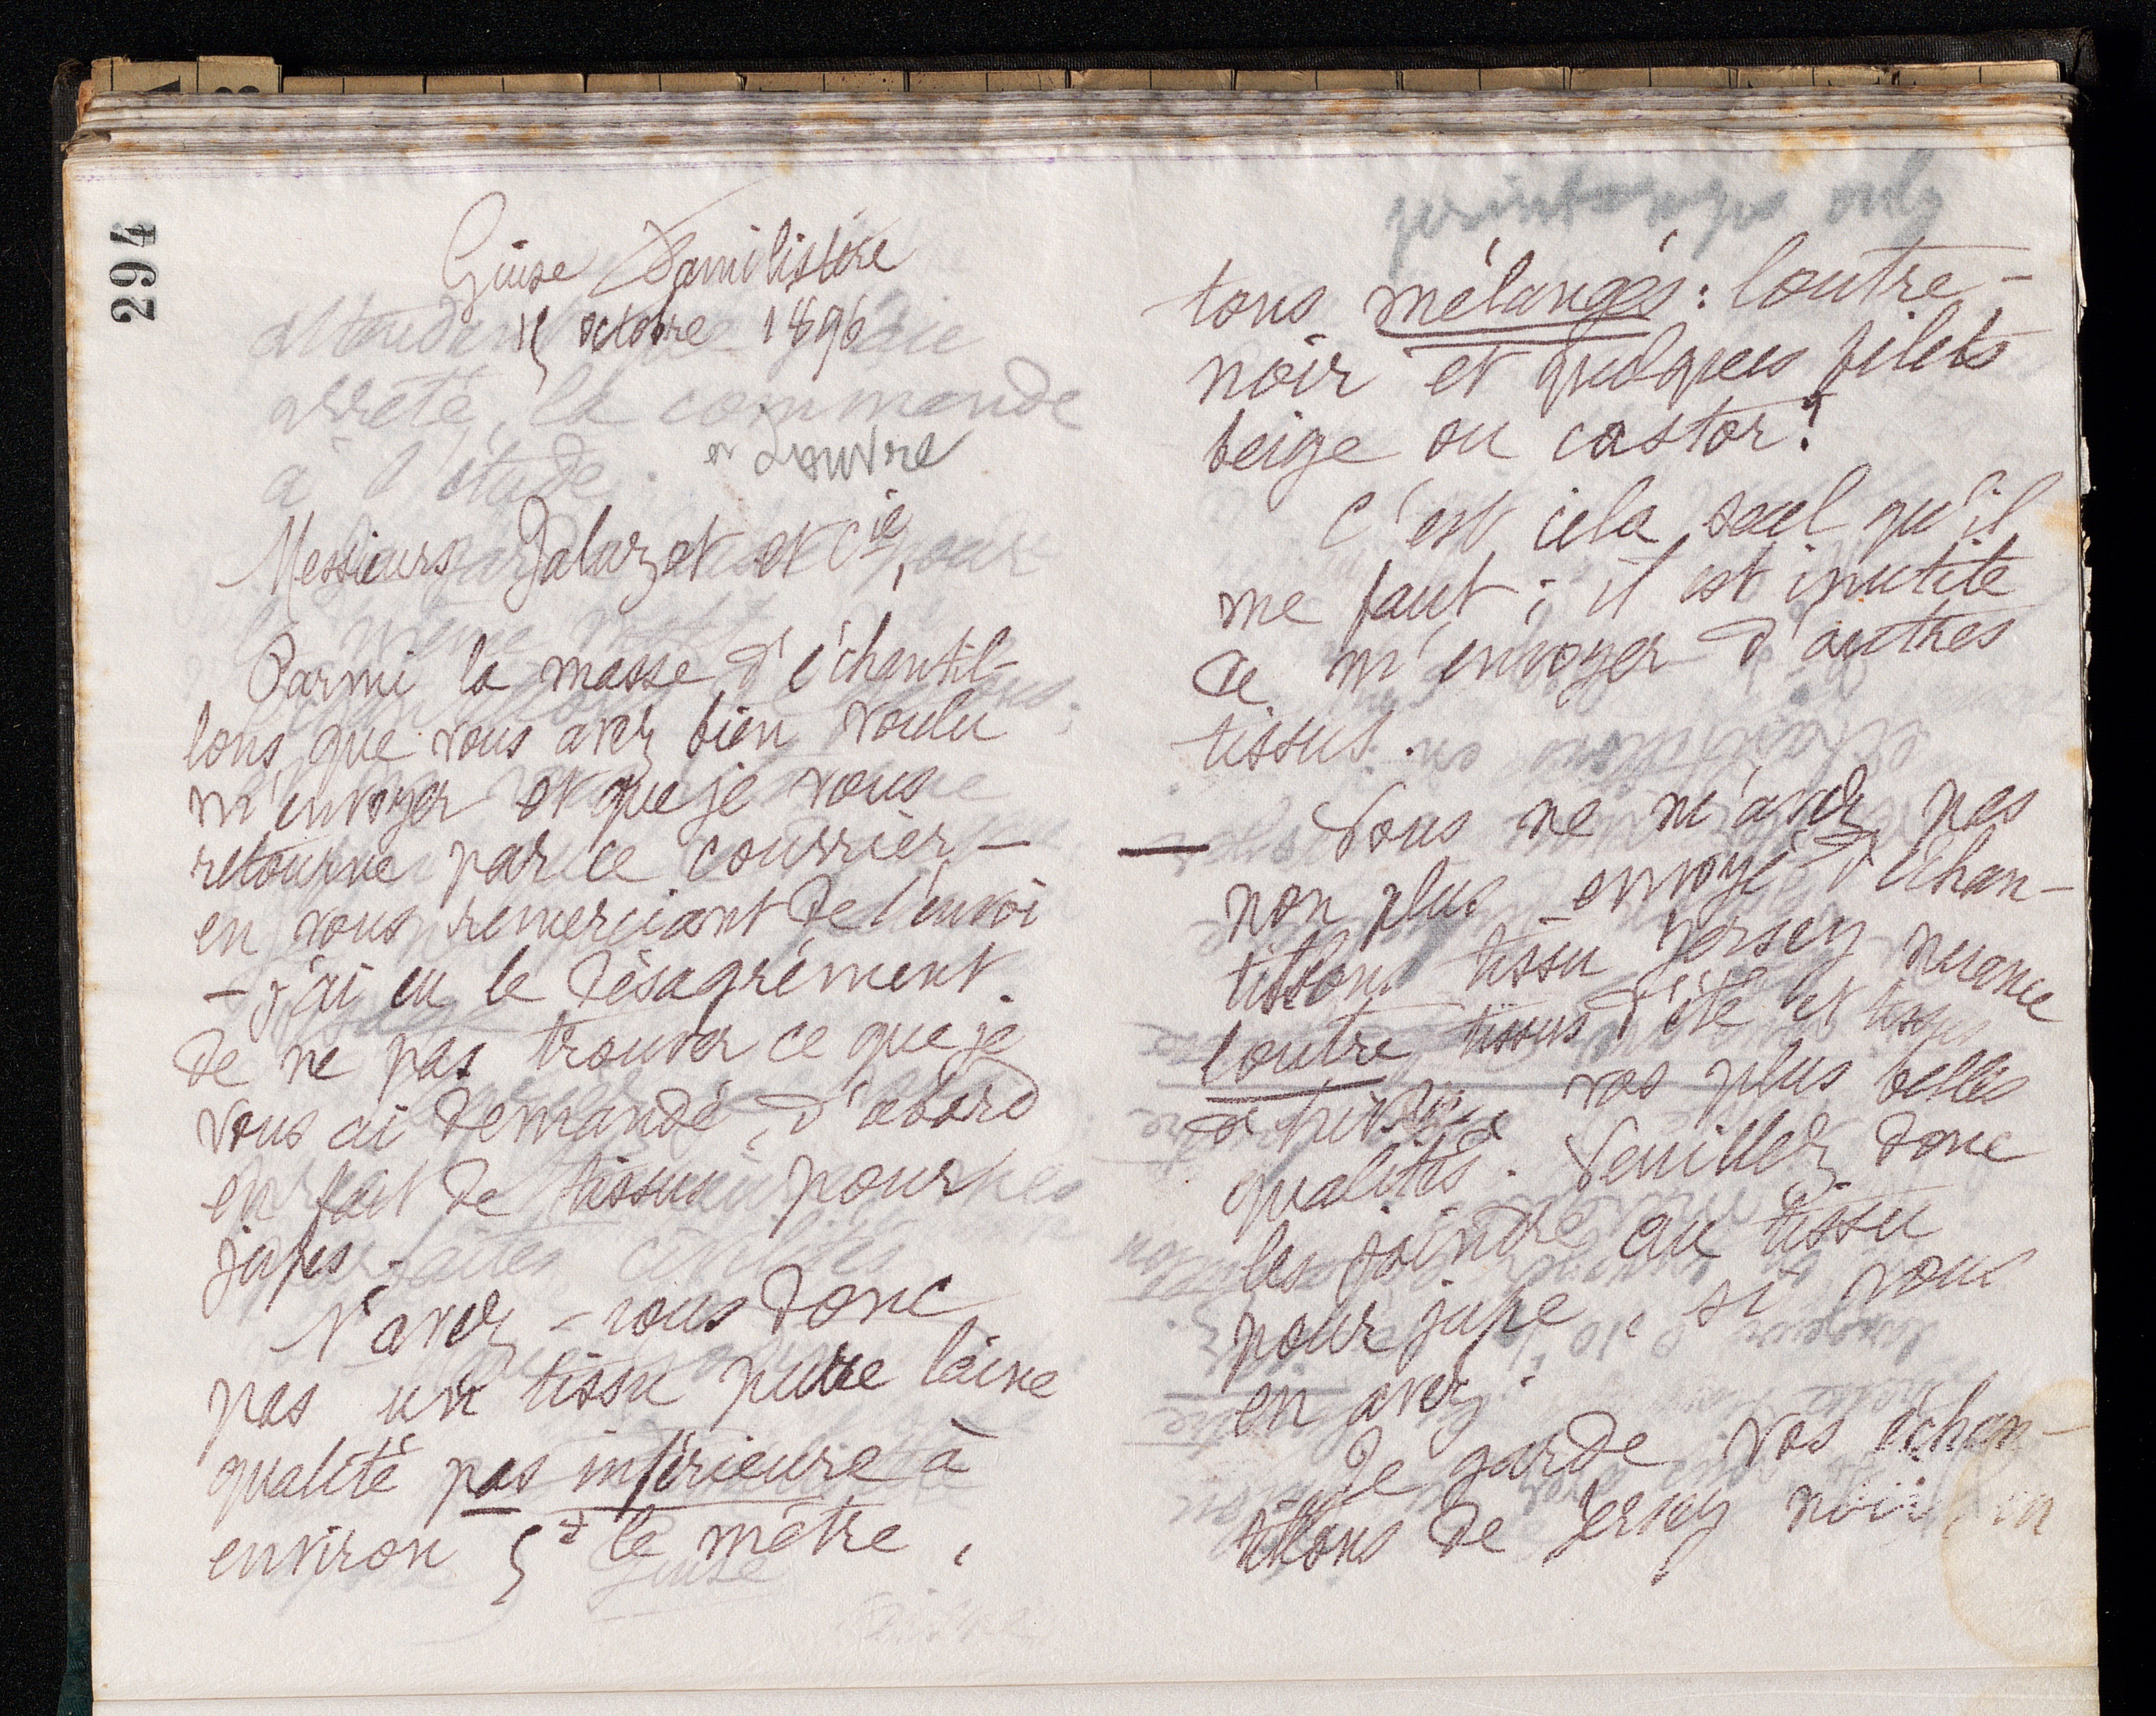 294
Guise Familistère
15 octobre 1896
et Louvre
Messieurs Jaluzot et Cie,
Parmi la masse d'échantil-
lons que vous avez bien voulu
m'envoyer et que je vous
retourne par ce courrier -
en vous remerciant de l'envoi
- j'ai eu le désagrément
de ne pas trouver ce que je
vous ai demandé d'abord
en fait de tissus pour
jupes.
N'avez-vous donc
pas un tissu pure laine
qualité pas inférieure à
environ 5f le mètre,
tons mélangés : loutre -
noir et quelques filets
beige ou castor ?
C'est cela seul qu'il
me faut ; il est inutile
de m'envoyer d'autres
tissus.
- Vous ne m'avez pas
non plus envoyé d'échan-
tillon tissu Jersey nuance
loutre tissus d'été et tissus
d'hiver, vos plus belles
qualités. Veuillez donc
les joindre au tissu
pour jupe, si vous
en avez.
Je garde vos échan-
tillons de Jersey noir en